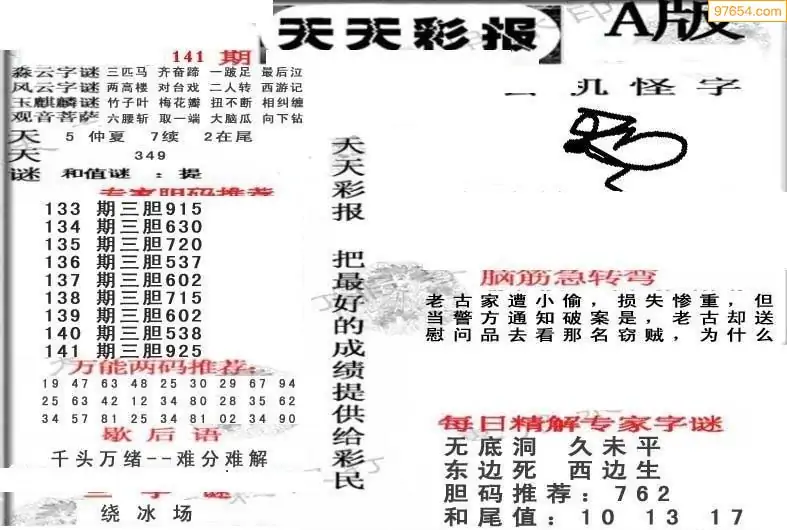 天天彩报
A版
97654.com
141 期
森云字谜 三匹马 齐奋蹄 一跛足 最后泣
风云字谜 两高楼 对台戏 二人转 西游记
玉麒麟谜 竹子叶 梅花瓣 扭不断 相纠缠
观音菩萨 六腰斩 取一端 大脑瓜 向下钻
天 5 仲夏 7续 2在尾
天 349
谜 和值谜 : 提
专家胆码推荐
133 期三胆915
134 期三胆630
135 期三胆720
136 期三胆537
137 期三胆602
138 期三胆715
139 期三胆602
140 期三胆538
141 期三胆925
万能两码推荐:
19 47 63 48 25 30 29 67 94
25 63 42 12 34 80 28 35 62
34 57 81 25 34 81 02 34 90
歇后语
千头万绪--难分难解
三字谜
绕冰场
天天彩报 把最好的成绩提供给彩民
玄机怪字
脑筋急转弯
老古家遭小偷，损失惨重，但
当警方通知破案是，老古却送
慰问品去看那名窃贼，为什么
每日精解专家字谜
无底洞 久未平
东边死 西边生
胆码推荐：762
和尾值：10 13 17